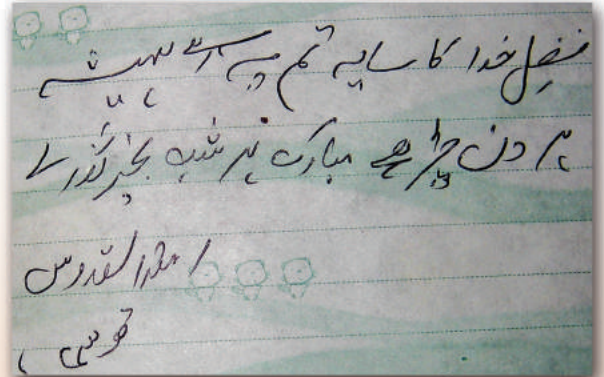 فضل خدا کا سایہ تم پہ رہے ہمیشہ
ہر دن چڑھے مبارک ہر شب بخیر گزرے
امۃ القدوس